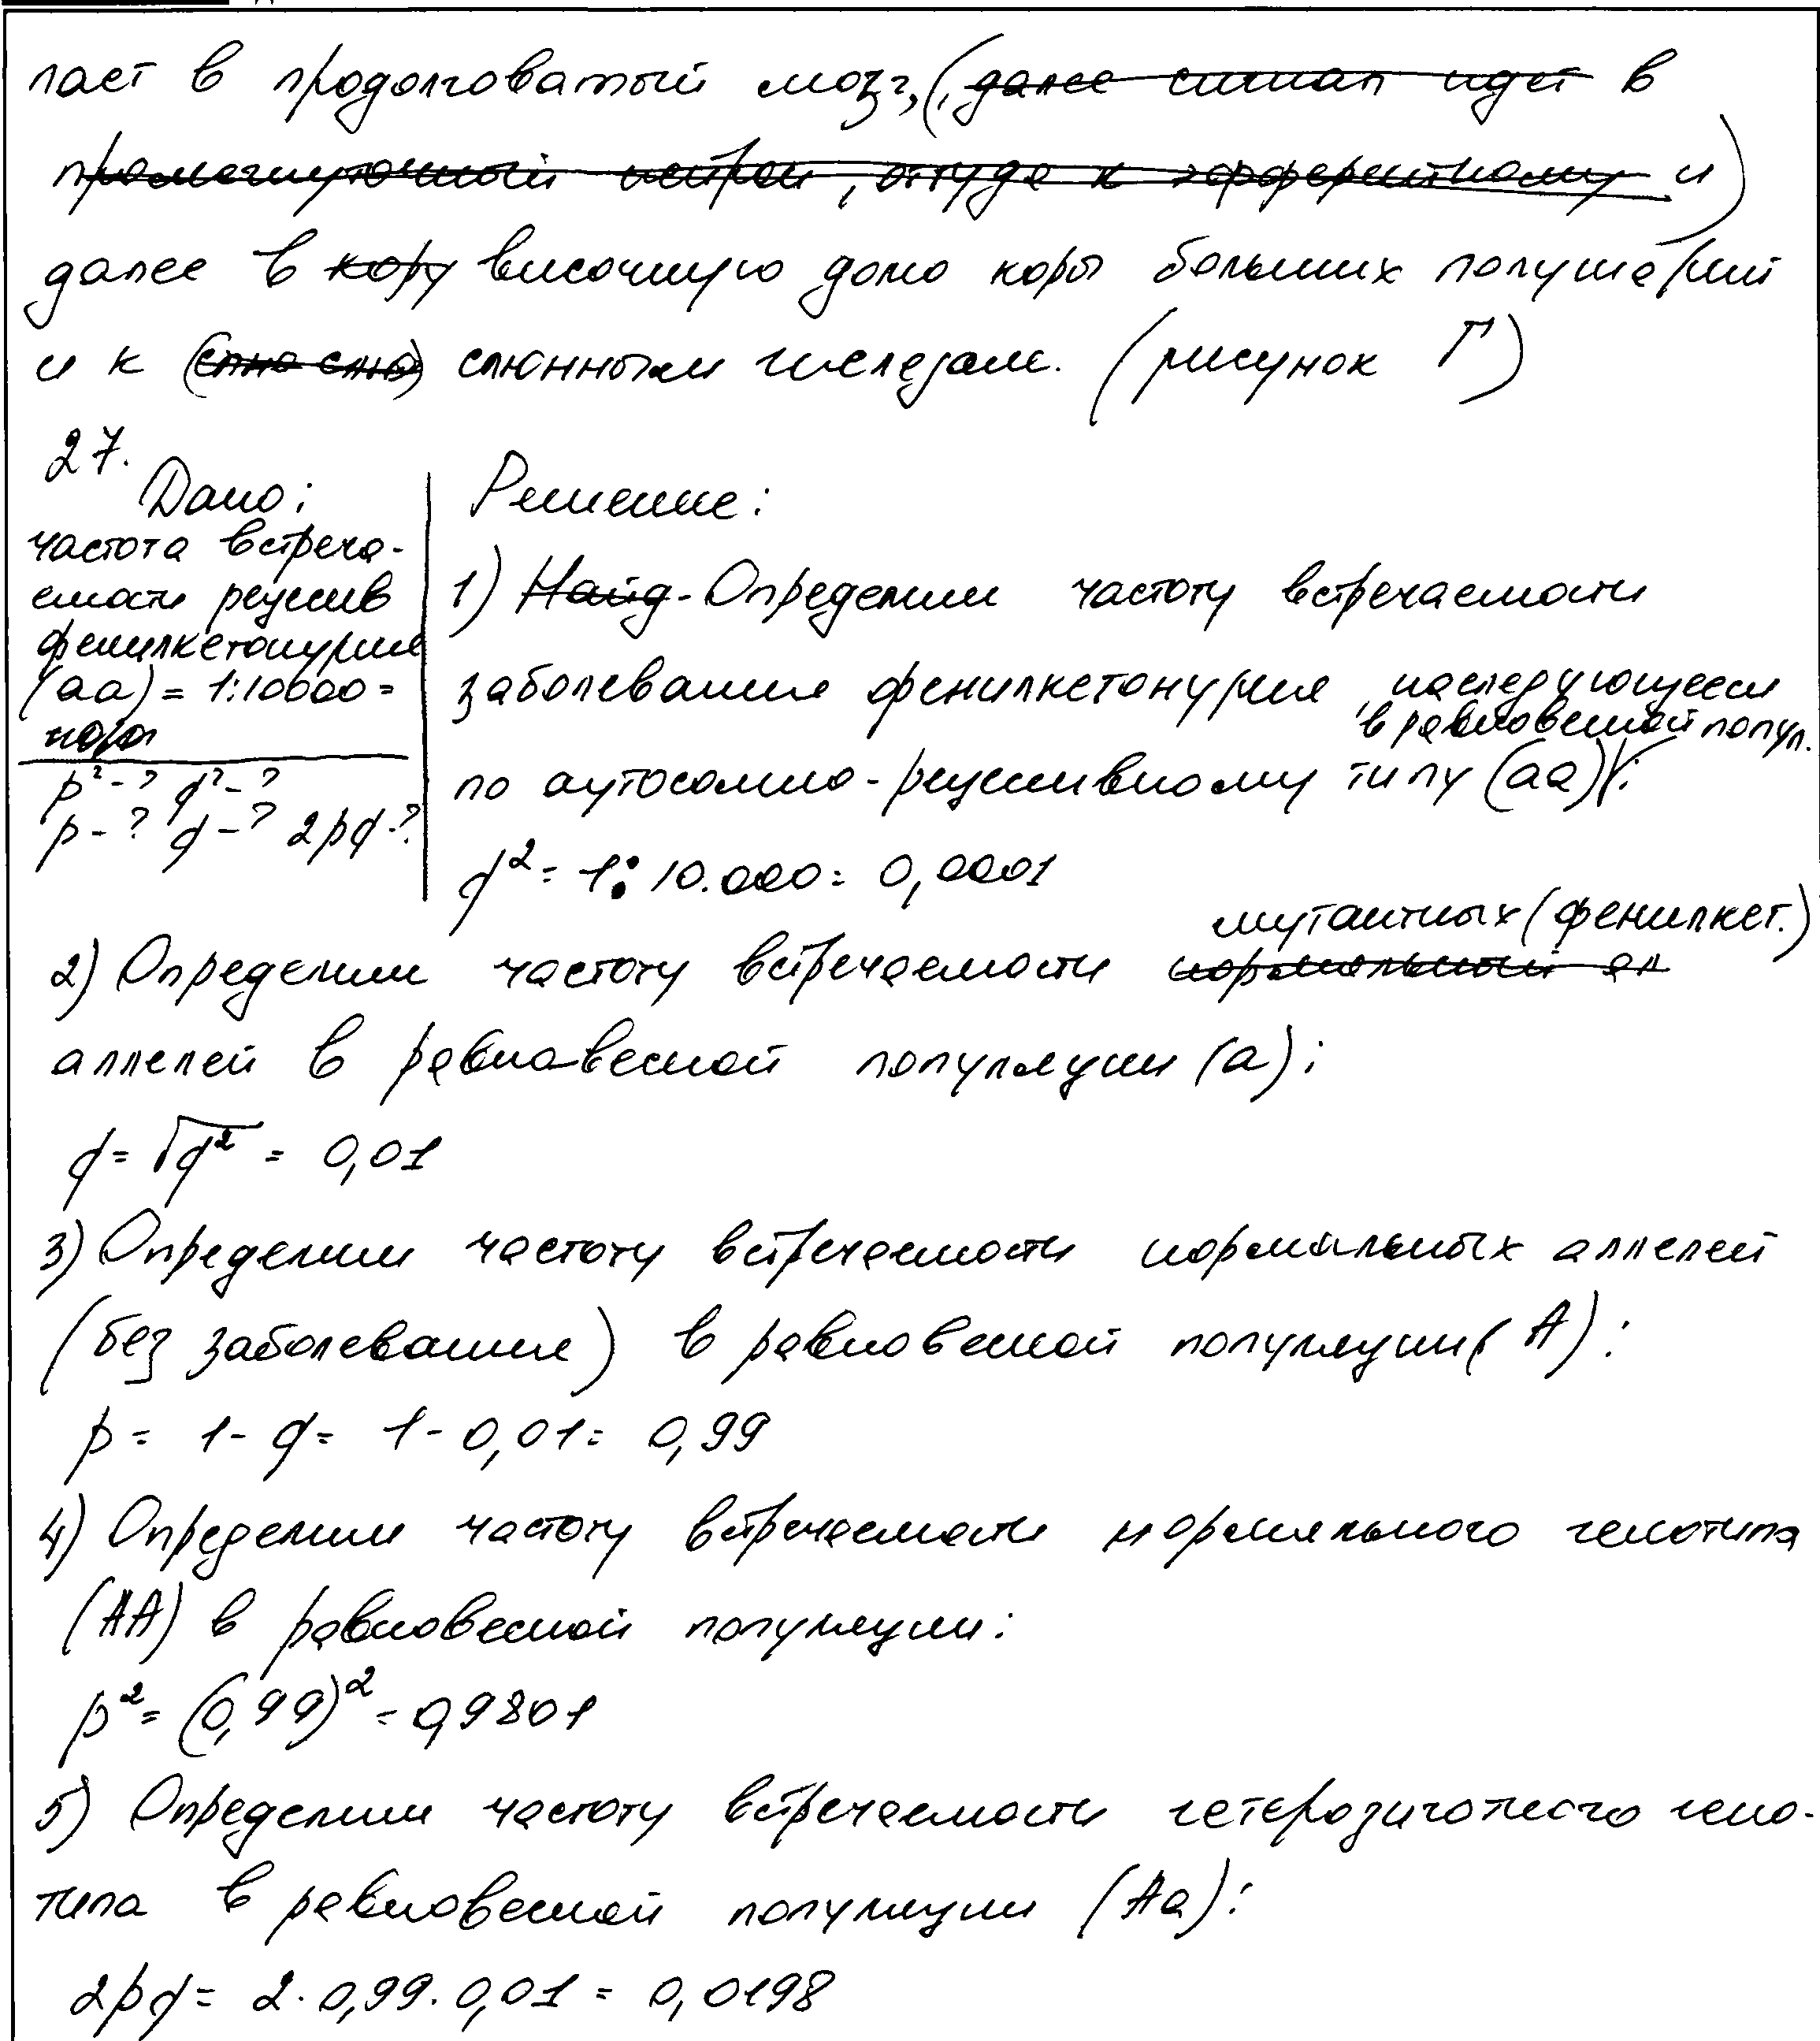 пает в продолговатый мозг, (, далее сигнал идет в
промежуточный нейрон, откуда к эфферентному и)
далее в кору височную долю коры больших полушарий
и к (слю слю) слюнным железам. (рисунок Г)
27.
Дано:
частота встреча-
емости рецессив
фенилкетонурие
(аа) = 1:10000 =
p² - ? q² - ?
p - ? q - ? 2pq - ?
Решение:
1) Найд- Определим частоту встречаемости
заболевания фенилкетонурия, наследующееся
в равновесной попул.
по аутосомно-рецессивному типу (аа):
q² = 1 : 10.000 = 0,0001
мутантных (фенилкет.)
2) Определим частоту встречаемости нормальный ал
аллелей в равновесной популяции (а):
q = √q² = 0,01
3) Определим частоту встречаемости нормальных аллелей
(без заболевания) в равновесной популяции (А):
p = 1 - q = 1 - 0,01 = 0,99
4) Определим частоту встречаемости нормального генотипа
(АА) в равновесной популяции:
p² = (0,99)² = 0,9801
5) Определим частоту встречаемости гетерозиготного гено-
типа в равновесной популяции (Аа):
2pq = 2 · 0,99 · 0,01 = 0,0198